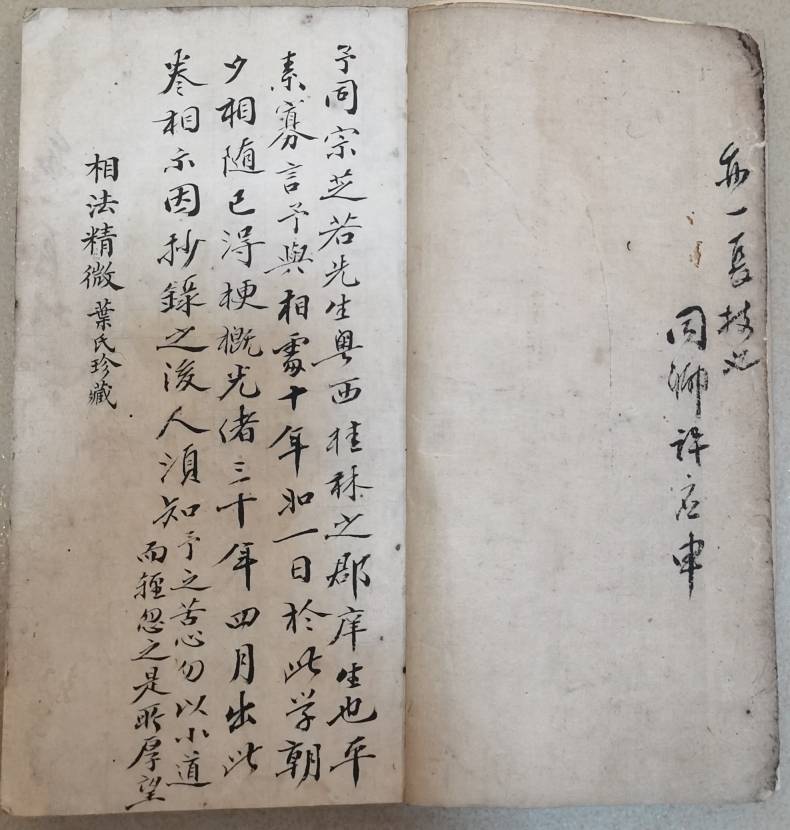 亦一長技也
同鄉許應申
予同宗芝若先生粵西桂林之郡庠生也平
素寡言予與相處十年如一日於此学朝
夕相随已淂梗概光绪三十年四月出此
卷相示因抄錄之後人須知予之苦心勿以小道
而輕忽之是所厚望
相法精微葉氏珍藏